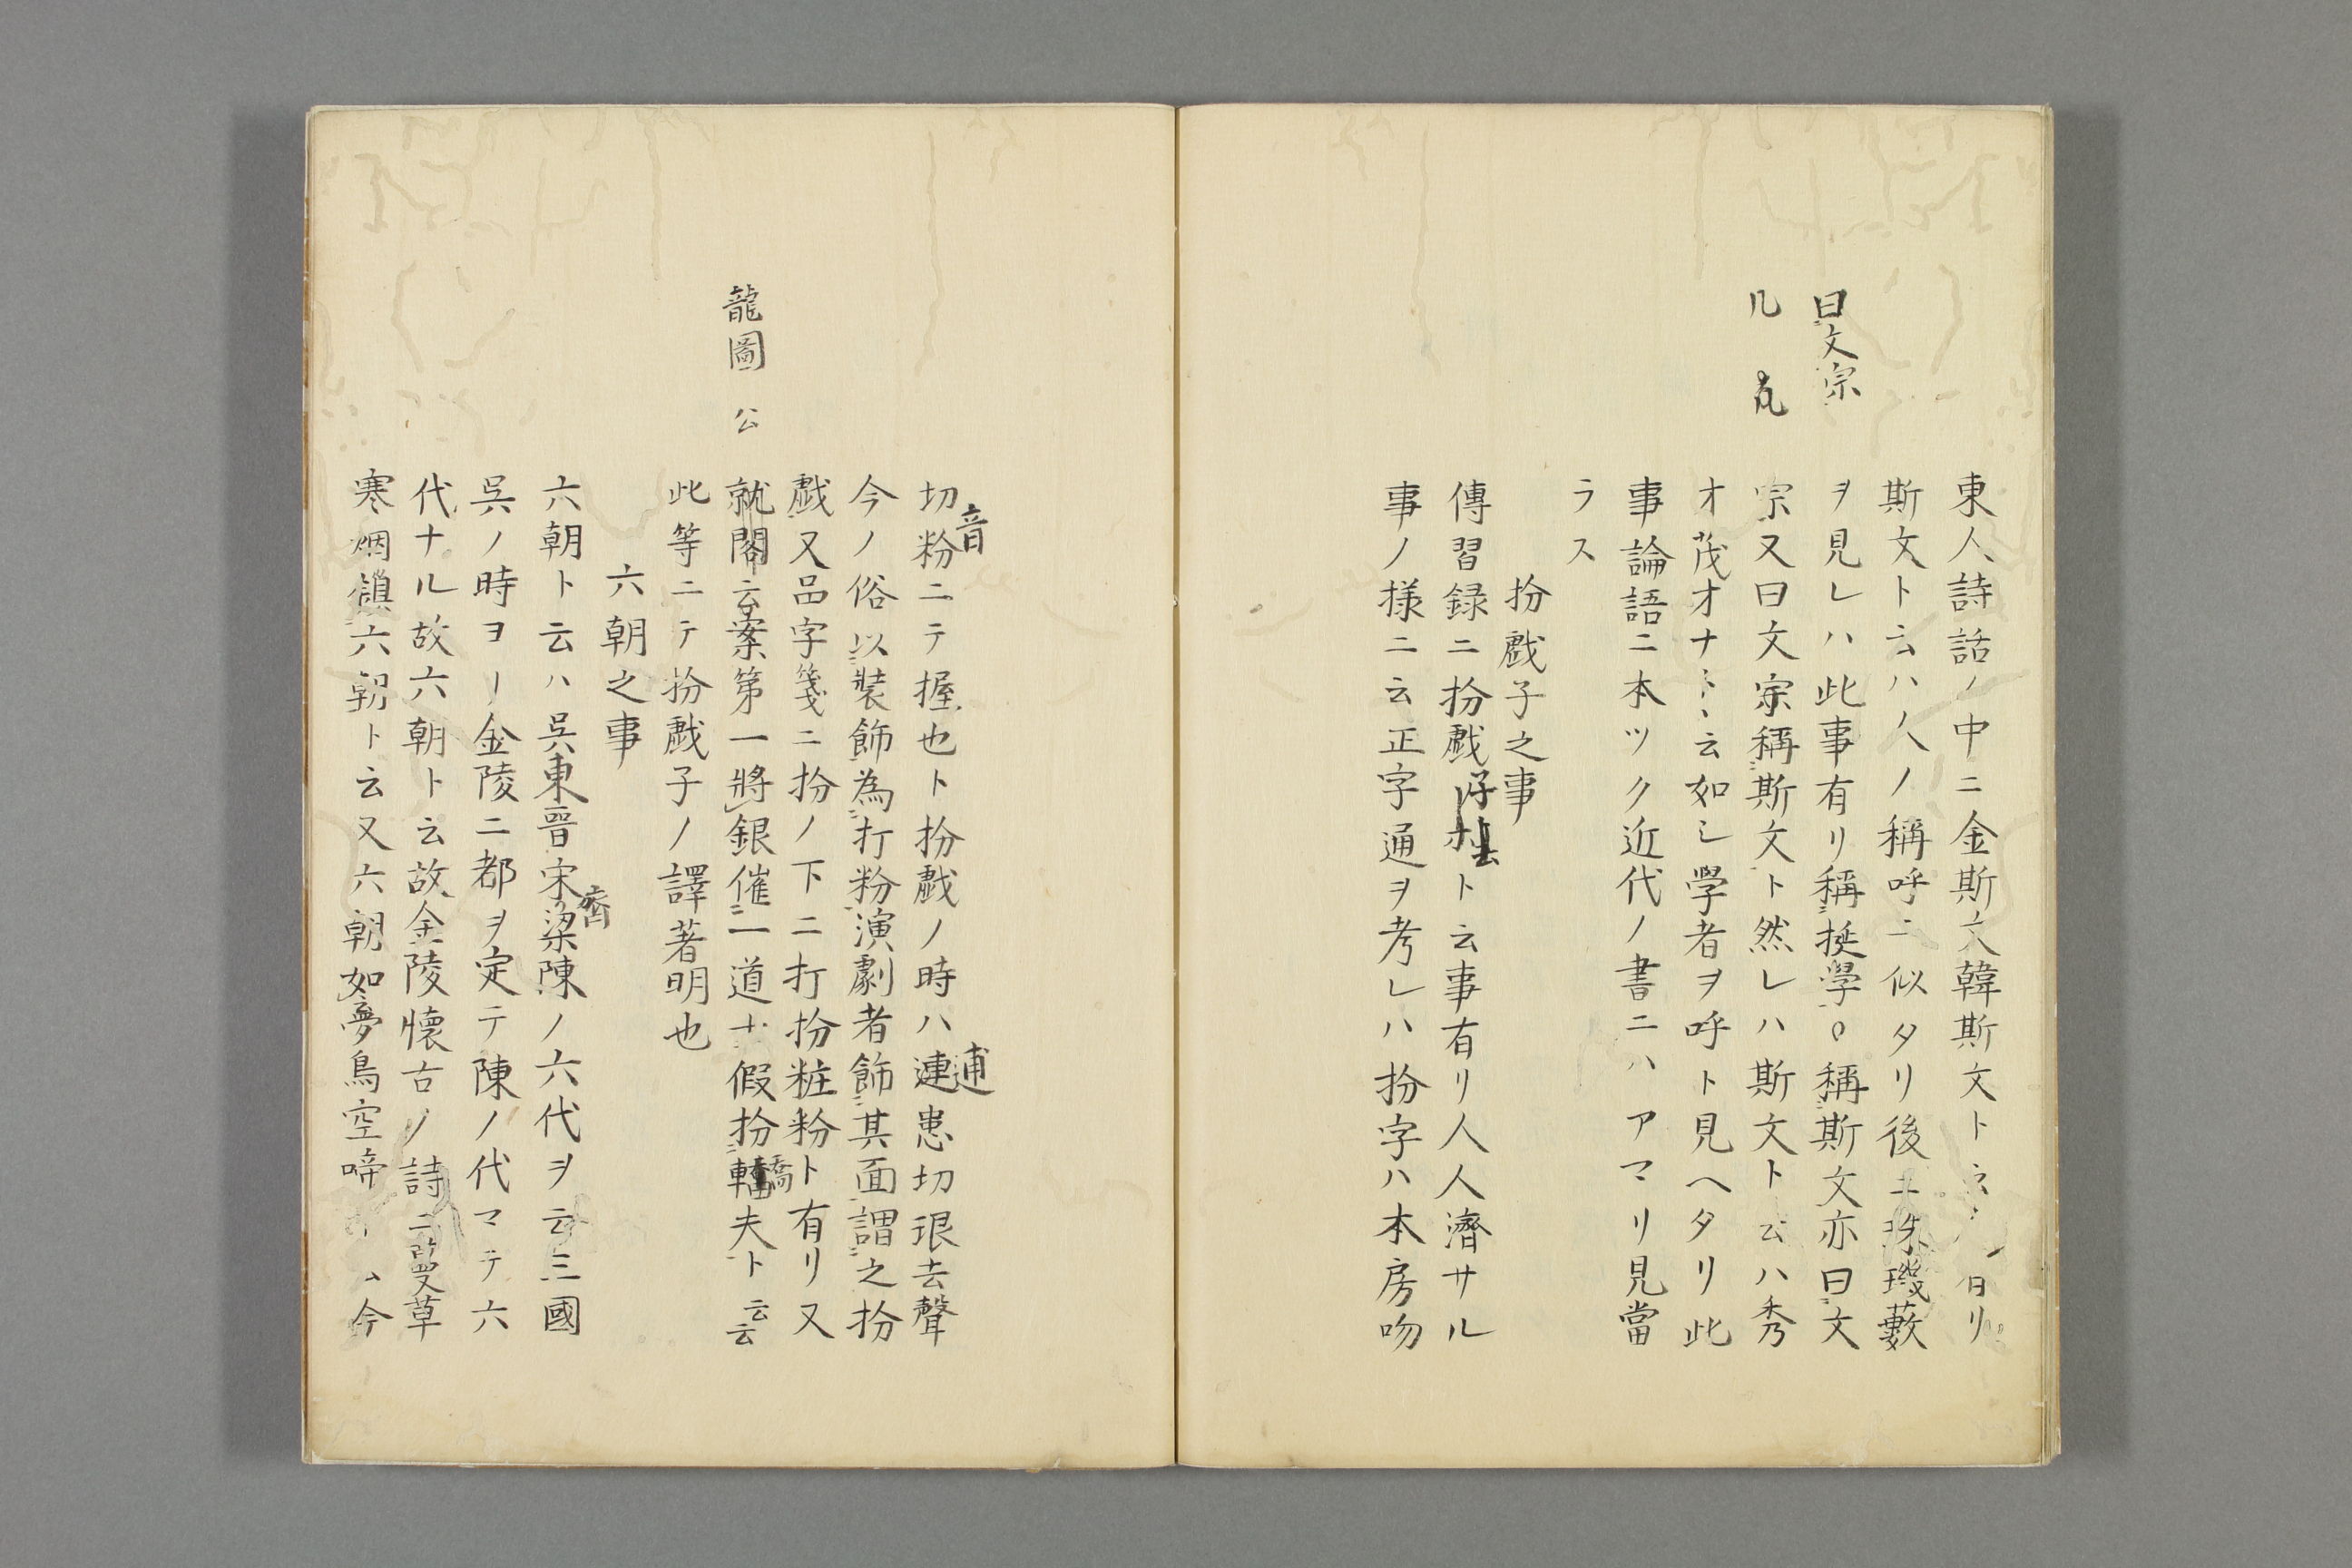 東人詩話ノ中ニ金斯文韓斯文ト云
斯文ト云ハ人ノ稱呼ニ似タリ後ニ珠璣藪
曰文宗
ヲ見レハ此事有リ稱挺學○稱斯文亦曰文
宗又曰文宗稱斯文ト然レハ斯文ト云ハ秀
才茂才ナト云如シ學者ヲ呼ト見ヘタリ此
事論語ニ本ツク近代ノ書ニハアマリ見當
ラス
扮戯子之事
傳習録ニ扮戯子ト云事有リ人人濟サル
事ノ様ニ云正字通ヲ考レハ扮字ハ本房吻
切音粉ニテ握也ト扮戯ノ時ハ逋患切珢去聲
今ノ俗以裝飾為打粉演劇者飾其面謂之扮
戯又品字箋ニ扮ノ下ニ打扮粧粉ト有リ又
龍圖公
就閣云案第一將銀催一道士假扮轎夫ト云云
此等ニテ扮戯子ノ譯著明也
六朝之事
六朝ト云ハ呉東晋宋齊梁陳ノ六代ヲ云三國
呉ノ時ヨリ金陵ニ都ヲ定テ陳ノ代マテ六
代ナル故六朝ト云故金陵懷古ノ詩ニ蔓草
寒烟鎖六朝ト云又六朝如夢鳥空啼 今